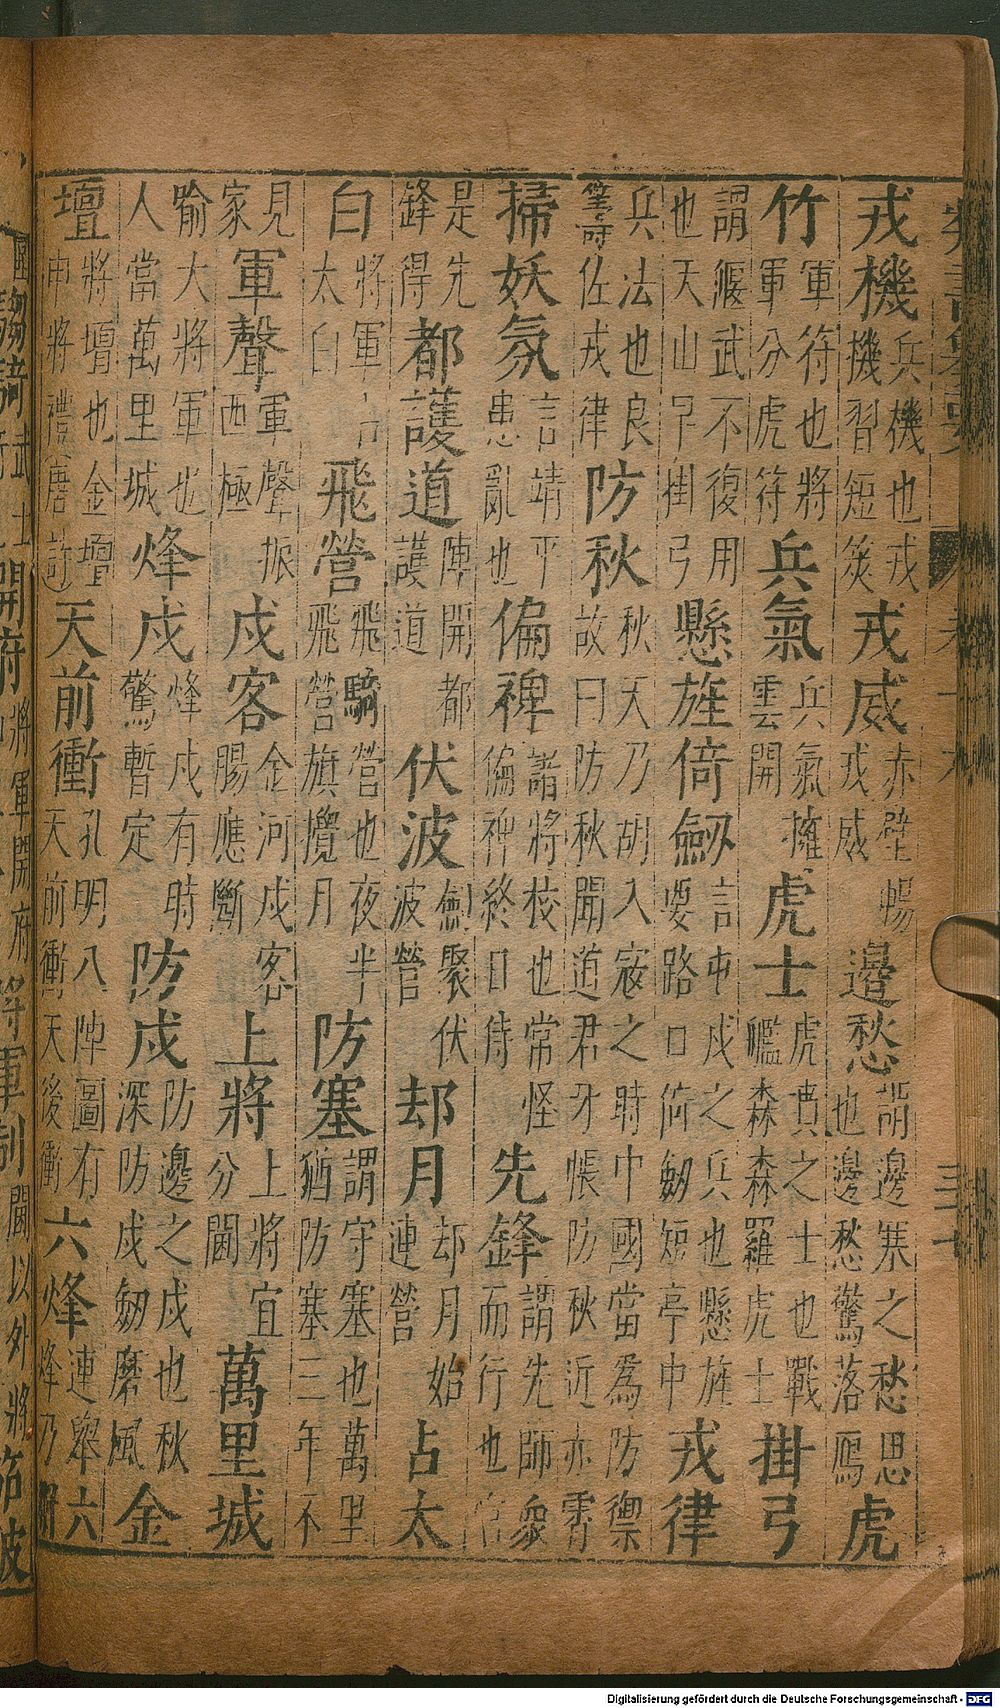 戎機兵機也戎機習短筴戎威赤壁暢戎威邊愁謂邊塞之愁思也邊愁驚落鴈虎
竹軍符也將軍分虎符兵氣兵氣擁雲開虎士虎賁之士也戰艦森森羅虎士掛弓
謂偃武不復用也天山早掛弓懸旌倚劒言屯戍之兵也懸旌要路口倚劒短亭中戎律
兵法也良籌佐戎律防秋秋天乃胡人入寇之時中國當爲防禦故曰防秋聞道君牙帳防秋近赤霄
掃妖氛言靖平患亂也偏裨諸將校也常怪偏裨終日侍先鋒謂先師衆而行也官
是先鋒得都護道陣開都護道伏波聚伏波營却月却月始連營占太
白將軍占太白飛營飛驕營也夜半飛營旗攪月防塞謂守塞也萬里猶防塞三年不
見家軍聲軍聲振西極戍客金河戍客腸應斷上將上將宜分閫萬里城
喻大將軍也人當萬里城烽戍烽戍有時驚暫定防戍防邊之戍也秋深防戍劒磨風金
壇將壇也金壇申將禮天前衝孔明八陣圖有天前衝天後衝六烽連舉六烽乃
開府將軍開府將軍制閫以外將
Digitalisierung gefördert durch die Deutsche Forschungsgemeinschaft - DFG